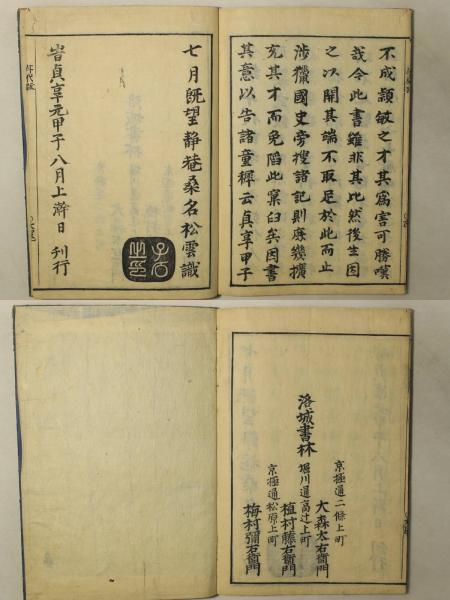 不成頴敏之才其爲害可勝嘆
哉令此書雖非其比然後生因
之以開其端不取足於此而止
涉獵國史旁搜諸記則庶幾擴
充其才而免陷此窠臼矣因書
其意以告諸童穉云貞享甲子
七月旣望靜菴桑名松雲識
旹貞享元甲子八月上澣日 刊行
洛城書林
京極通二條上町
大森太右衞門
堀川通高辻上町
植村藤右衞門
京極通松原上町
梅村彌右衞門